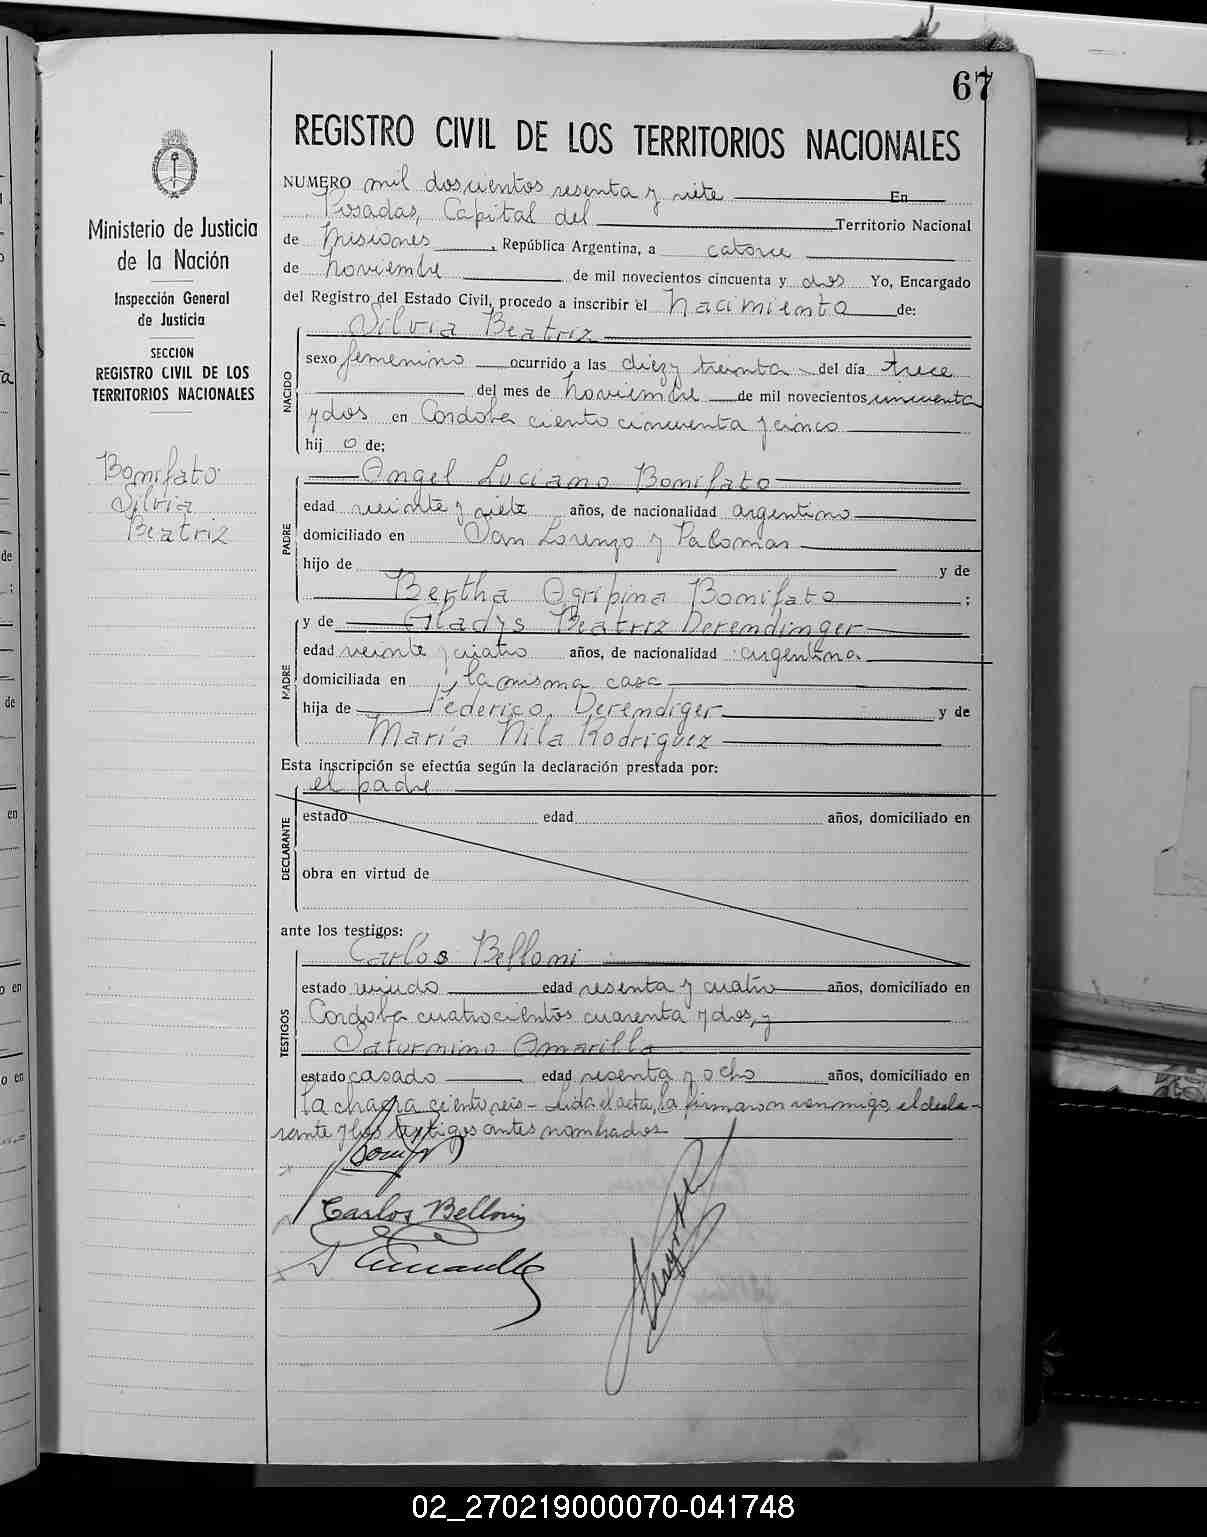 67
REGISTRO CIVIL DE LOS TERRITORIOS NACIONALES
Ministerio de Justicia
de la Nación
Inspección General
de Justicia
SECCION
REGISTRO CIVIL DE LOS
TERRITORIOS NACIONALES
Bonifato
Silvia
Beatriz
NUMERO mil doscientos sesenta y siete En
Posadas, Capital del Territorio Nacional
de Misiones, República Argentina, a catorce
de Noviembre de mil novecientos cincuenta y dos Yo, Encargado
del Registro del Estado Civil, procedo a inscribir el Nacimiento de:
NACIDO
Silvia Beatriz
sexo femenino ocurrido a las diez y treinta del día trece
del mes de Noviembre de mil novecientos cincuenta
y dos en Cordoba ciento cincuenta y cinco
hij o de;
PADRE
Angel Luciano Bonifato
edad veinte y siete años, de nacionalidad argentino
domiciliado en San Lorenzo y Palomar
hijo de y de
Bertha Agripina Bonifato ;
MADRE
y de Gladys Beatriz Derendinger
edad veinte y cuatro años, de nacionalidad argentina
domiciliada en la misma casa
hija de Federico Derendiger y de
María Nila Rodriguez
Esta inscripción se efectúa según la declaración prestada por:
DECLARANTE
el padre
estado edad años, domiciliado en
obra en virtud de
ante los testigos:
TESTIGOS
Carlos Belloni
estado viudo edad sesenta y cuatro años, domiciliado en
Cordoba cuatrocientos cuarenta y dos, y
Saturnino Amarilla
estado casado edad sesenta y ocho años, domiciliado en
la chacra ciento seis - Leida el acta, la firmaron conmigo, el decla-
rante y los testigos antes nombrados
Carlos Belloni
S Amarilla
02_270219000070-041748